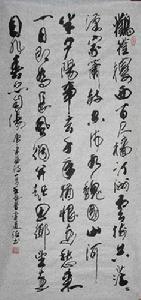 鸛雀樓西百尺檣汀洲雲樹共茫茫
漢家簫鼓空流水魏國山河
半夕陽事去千年猶恨速愁來
一日即為長風煙並起思鄉望遠
目非春亦自傷